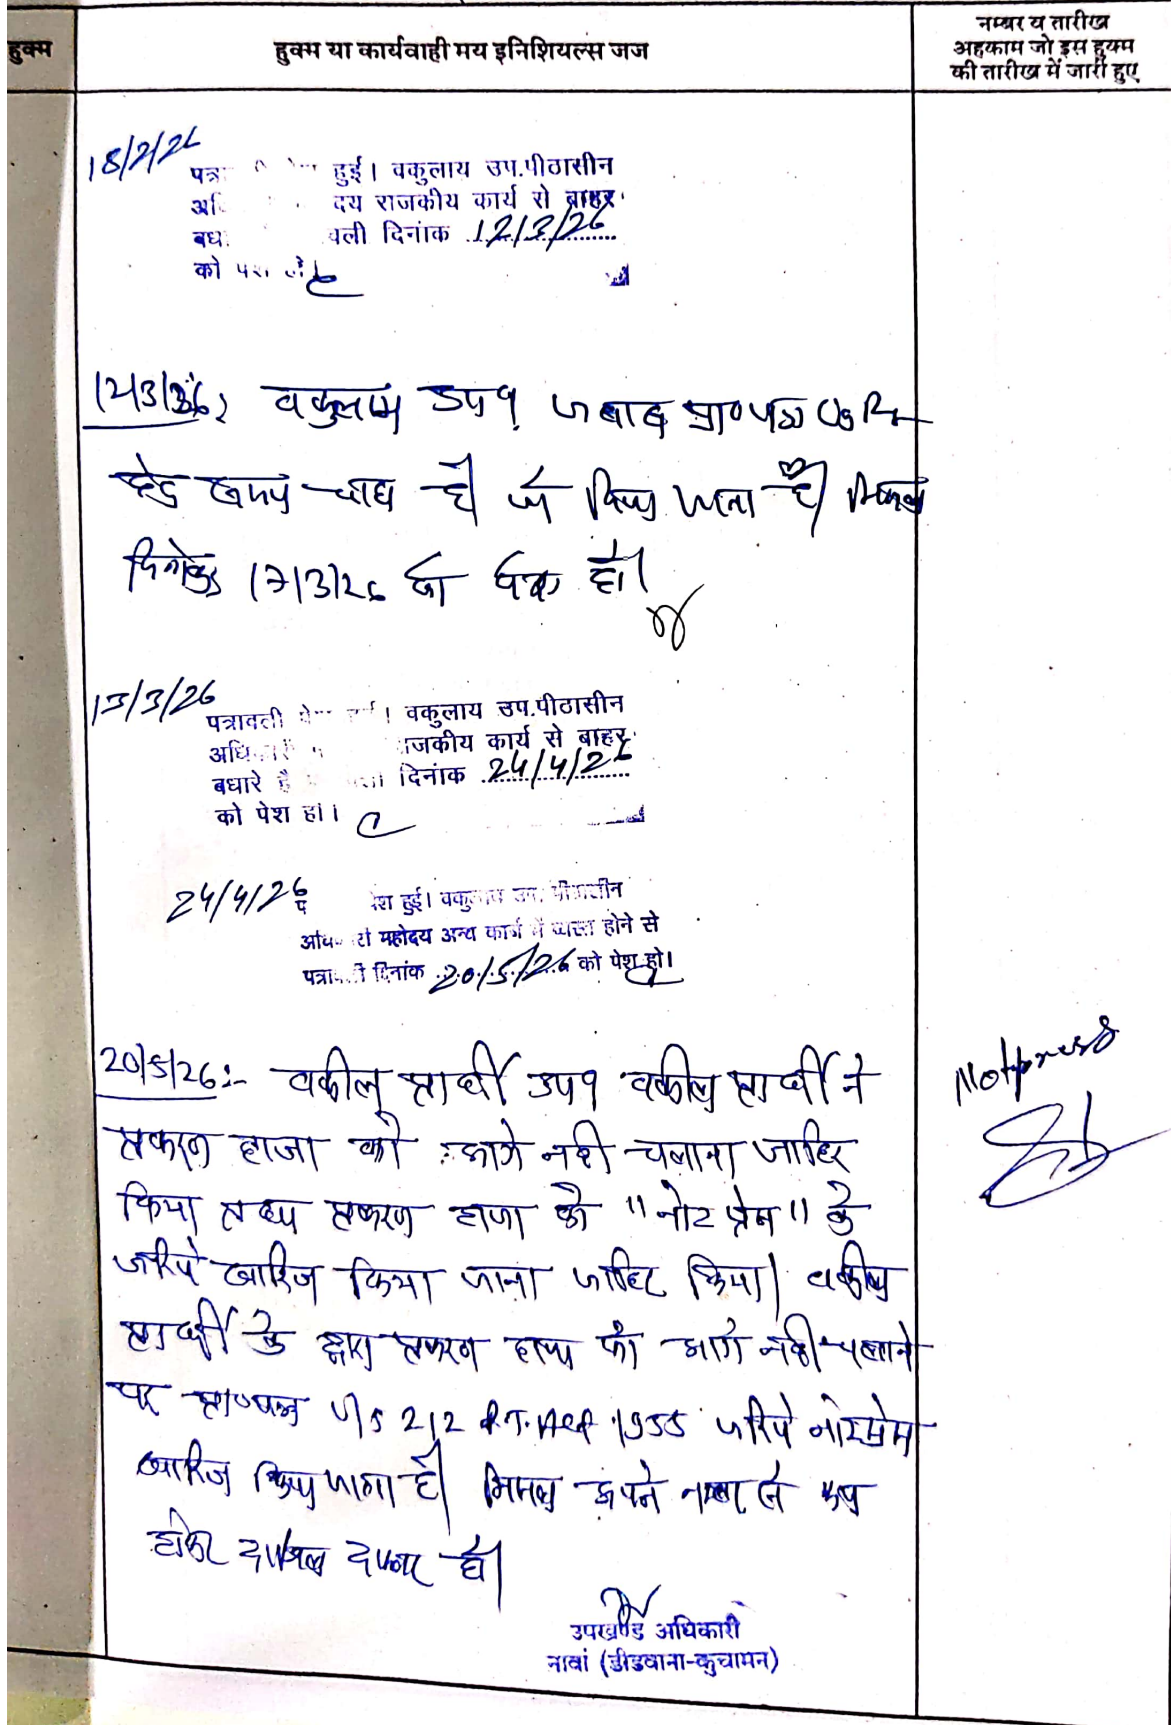 हुक्म
हुक्म या कार्यवाही मय इनिशियल्स जज
नम्बर व तारीख
अहकाम जो इस हुक्म
की तारीख में जारी हुए
18/2/26
पत्रा हुई। वकुलाय उप.पीठासीन
अधि दय राजकीय कार्य से बाहर
बधा वली दिनांक 12/3/26
को पेश हो
12/3/26
वकुलाय उप० जवाब प्रा०पत्र
हेतु समय चाहा है। किया जाता है। मिसल
दिनांक 17/3/26 को पेश हो।
13/3/26
पत्रावली हुई। वकुलाय उप.पीठासीन
अधि राजकीय कार्य से बाहर
बधारे है दिनांक 24/4/26
को पेश हो।
24/4/26
पेश हुई। वकुलाय उप. पीठासीन
अधि री महोदय अन्य कार्य में व्यस्त होने से
पत्रा ली दिनांक 20/5/26 को पेश हो।
20/5/26:- वकील प्रार्थी उप० वकील प्रार्थी ने
प्रकरण हाजा को आगे नही चलाना जाहिर
किया तथा प्रकरण हाजा को "नोट प्रेस" के
जरिये खारिज किया जाना जाहिर किया। वकील
प्रार्थी के द्वारा प्रकरण हाजा को आगे नही चलाने
पर प्रा०पत्र U/S 212 R.T. Act 1955 जरिये नोटप्रेस
खारिज किया जाता है। मिसल अपने नम्बर से कम
होकर दाखिल दफ्तर हो।
Notpress
उपखण्ड अधिकारी
नावां (डीडवाना-कुचामन)